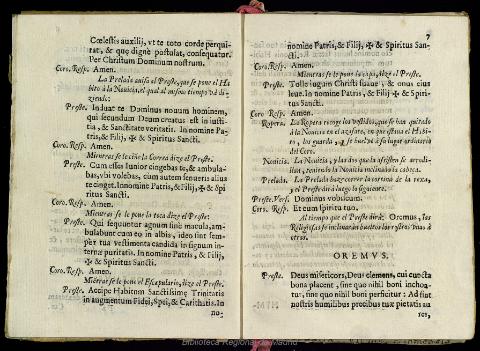 Cœlestis auxilij, vt te toto corde perqui-
rat, & quę dignè postulat, consequatur.
Per Christum Dominum nostrum.
Coro. Resp. Amen.
La Prelada avisa el Preste, que se pone el Ha
bito à la Novicia, el qual al mismo tiempo và di-
ziendo:
Preste. Induat te Dominus novum hominem,
qui secundum Deum creatus est in iusti-
tia, & Sanctitate veritatis. In nomine Pa-
tris, & Filij, ✠ & Spiritus Sancti.
Coro. Resp. Amen.
Mientras se le ciñe la Correa dize el Preste.
Preste. Cum esses Iunior cingebas te, & ambula-
bas, vbi volebas, cum autem senueris alius
te cinget. In nomine Patris, & Filij, ✠ & Spi
ritus Sancti.
Coro. Resp. Amen.
Mientras se le pone la toca dize el Preste:
Preste. Qui sequuntur agnum sine macula, am-
bulabunt cum eo in albis, ideo sint sem-
pèr tua vestimenta candida in signum in-
ternæ puritatis. In nomine Patris, & Filij,
✠ & Spiritus Sancti.
Coro. Resp. Amen.
Mientras se le pone el Escapulario, dize el Preste.
Preste. Accipe Habitum Sanctissimę Trinitatis
in augmentum Fidei, Spei, & Caritatis. In
no-
7
nomine Patris, & Filij, ✠ & Spiritus San-
cti.
Coro. Resp. Amen.
Mientras se le pone la capa, dize el Preste.
Preste. Tolle iugum Christi suave, & onus eius
leue. In nomine Patris, & Filij ✠ & Spiri-
tus Sancti.
Coro. Resp. Amen.
Ropera. La Ropera recoge los vestidos, que se han quitado
à la Novicia en el azafate, en que estava el Habi-
to, los guarda, y se buelve à su lugar ordinario
del Coro.
Novicia. La Novicia, y las dos que la assisten se arrodi-
llan, teniendo la Novicia inclinada la cabeça.
Prelada. La Prelada haze correr la cortina de la rexa,
y el Preste dirà luego lo siguiente.
Preste. Vers. Dominus vobiscum.
Coro. Resp. Et cum spiritu tuo.
Al tiempo que el Preste dirà: Oremus, las
Religiosas se inclinaràn bueltos los rostros vnas à
otras.
OREMVS.
Preste. Deus misericors, Deus clemens, cui cuncta
bona placent, sine quo nihil boni inchoa-
tur, sine quo nihil boni perficitur: Adsint
nostris humilibus precibus tuæ pietatis au
res,
Biblioteca Regional de Madrid